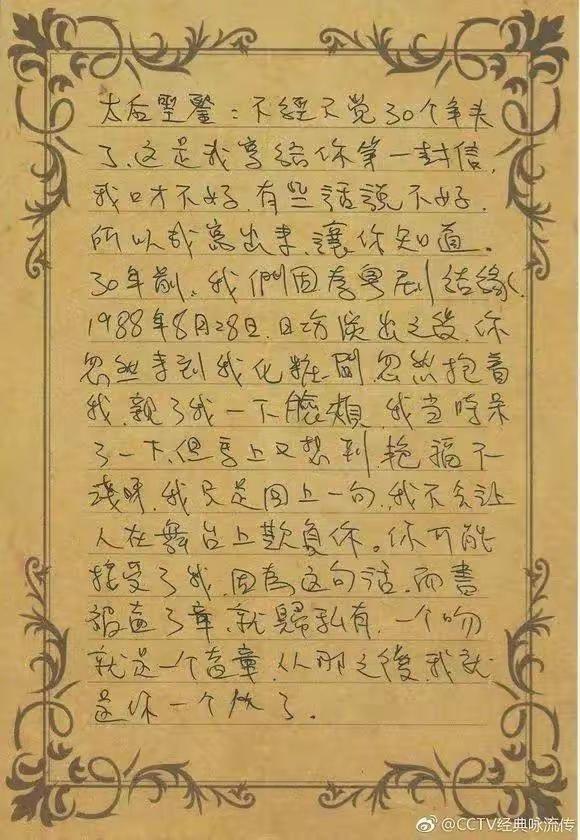 太后聖鑒：不經不覚30个年头
了、这是我寫給你第一封信，
我口才不好，有些話說不好，
所以我寫出来，讓你知道。
30年前、我們因為粵剧結緣，
1988年8月28日，日场演出之後，你
忽然来到我化粧間，忽然抱着
我，親了我一下臉頰，我当時呆
了一下，但馬上又想到，艳福不
淺呀，我只是回上一句，我不会让
人在舞台上欺負你。你可能
接受了我，因為这句话，而書
被盖了章，就歸私有，一个吻
就是一个盖章，从那之後，我就
是你一个的了。
@CCTV经典咏流传